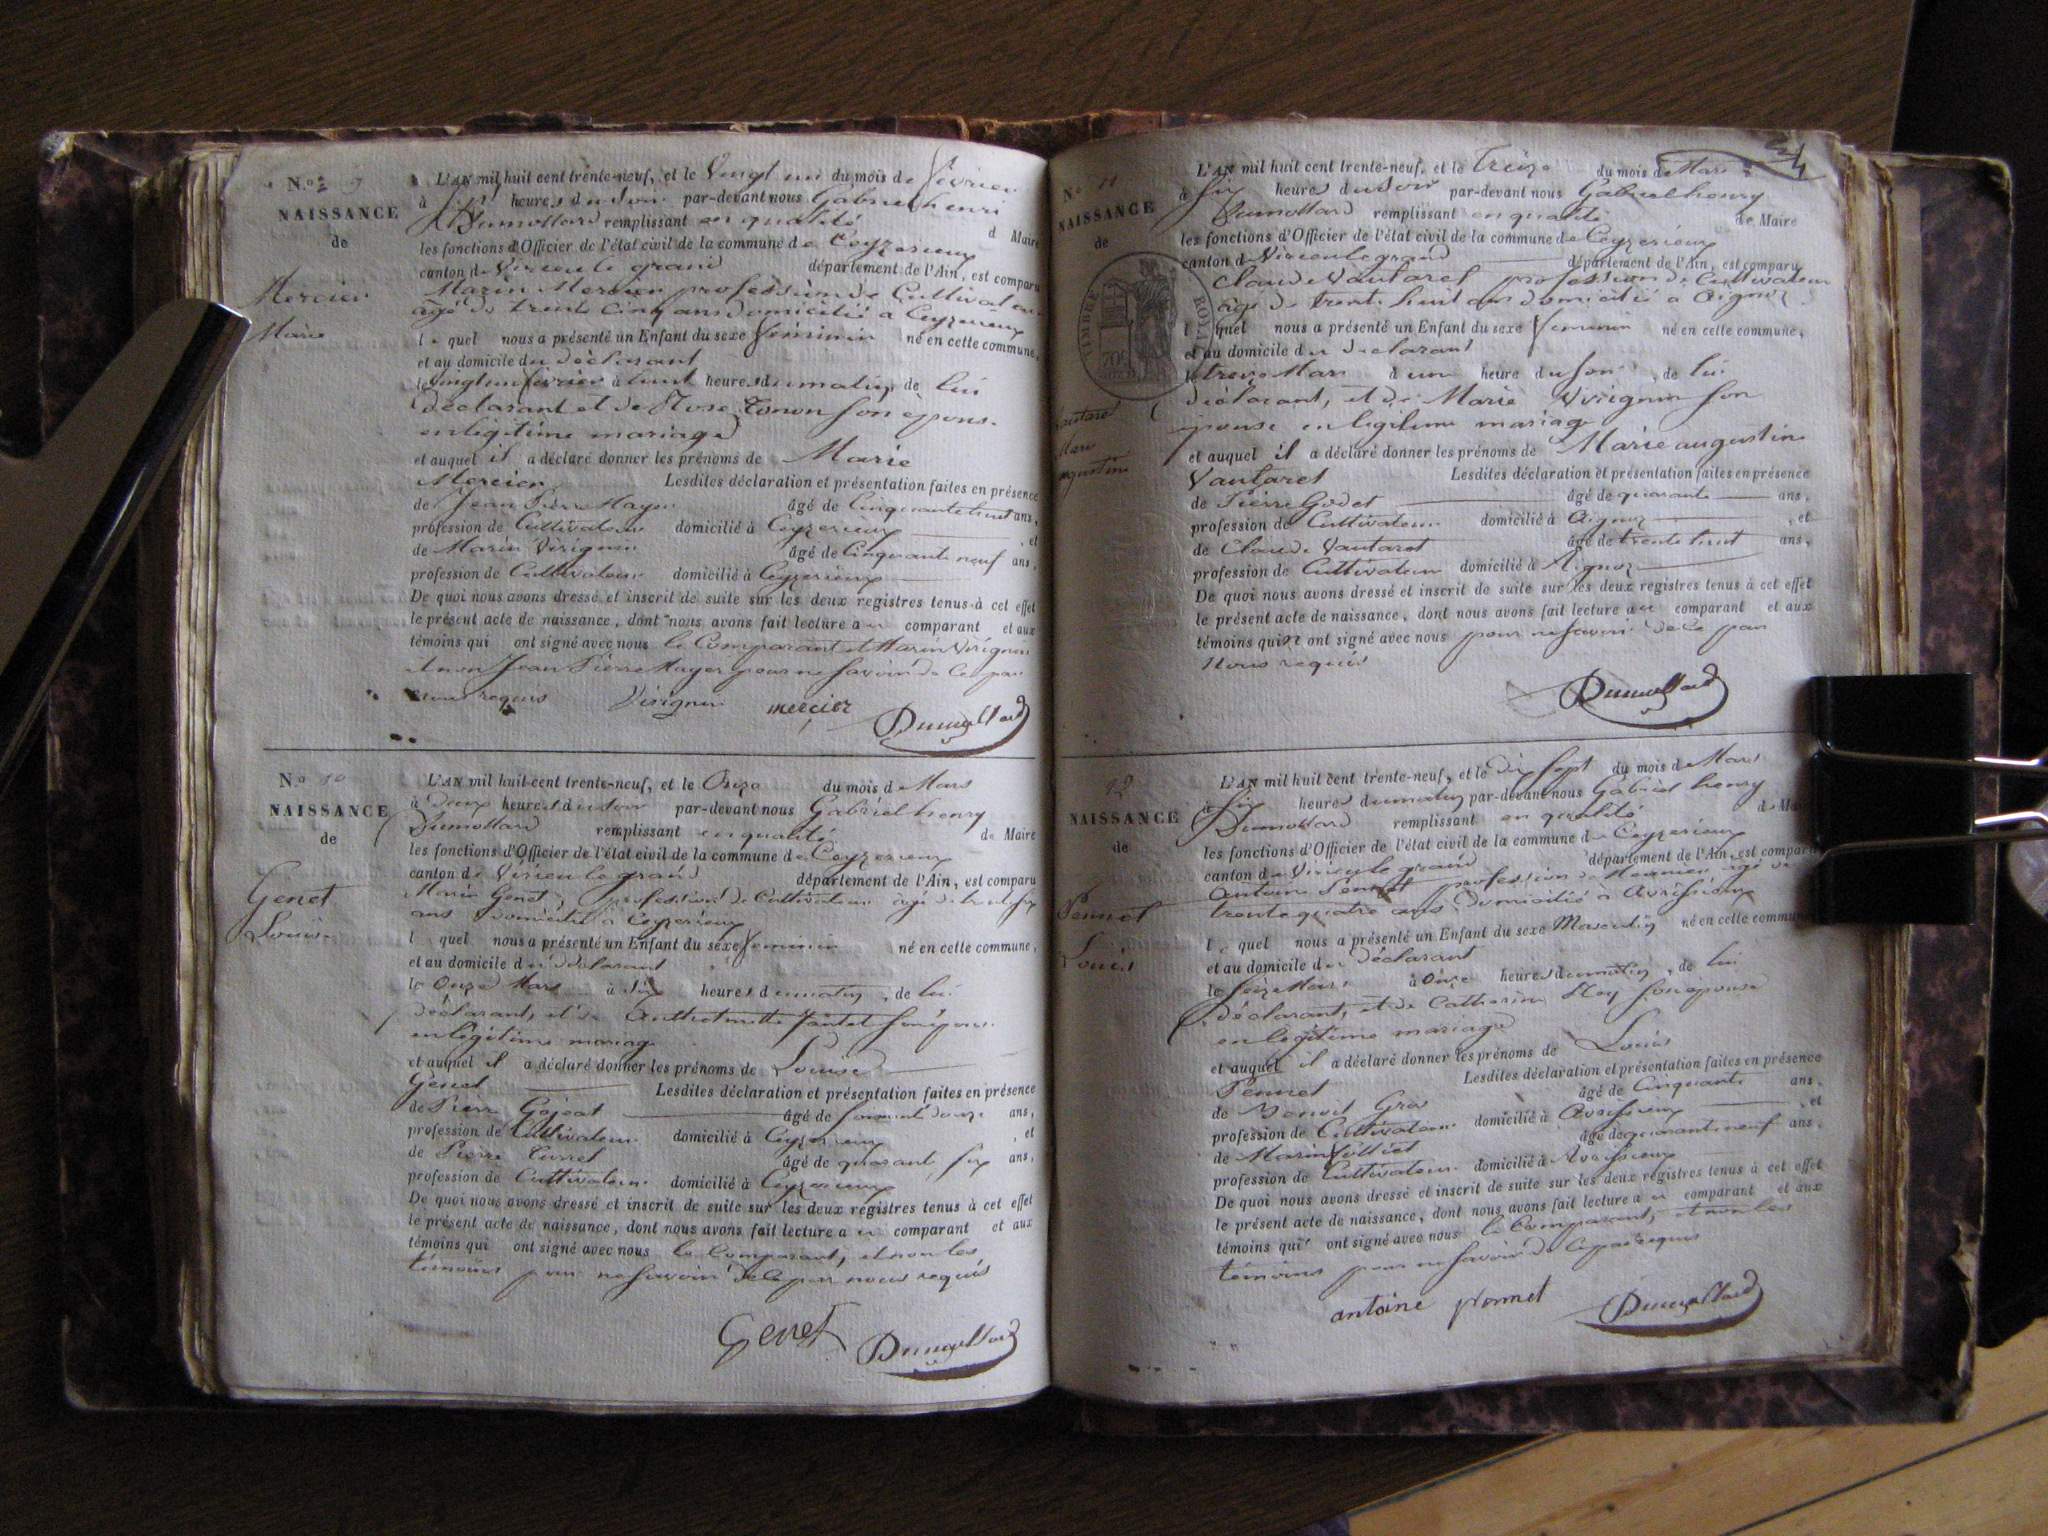 N.o 9
NAISSANCE
de
Mercier
Marie
L'AN mil huit cent trente-neuf, et le Vingt un du mois de février
à heures du soir par-devant nous Gabriel henri
Dumollard remplissant en qualité de Maire
les fonctions d'Officier de l'état civil de la commune de Ceyzerieux
canton de Virieu le grand département de l'Ain, est comparu
Marin Mercier profession de Cultivateur
âgé de trente cinq ans domicilié à Ceyzerieux
lequel nous a présenté un Enfant du sexe féminin né en cette commune,
et au domicile du déclarant
le vingt un février à huit heures du matin, de lui
déclarant et de Rose Tonon son épouse
en légitime mariage
et auquel il a déclaré donner les prénoms de Marie
Mercier Lesdites déclaration et présentation faites en présence
de Jean Pierre Mayer âgé de Cinquante huit ans,
profession de Cultivateur domicilié à Ceyzerieux , et
de Marin Virignin âgé de Cinquante neuf ans,
profession de Cultivateur domicilié à Ceyzerieux
De quoi nous avons dressé et inscrit de suite sur les deux registres tenus à cet effet
le présent acte de naissance, dont nous avons fait lecture au comparant et aux
témoins qui ont signé avec nous le Comparant et Marin Virignin
et non Jean Pierre Mayer pour ne savoir de ce par
nous requis Virignin mercier Dumollard
N.o 10
NAISSANCE
de
Genet
Louise
L'AN mil huit cent trente-neuf, et le Onze du mois de Mars
à Deux heures du soir par-devant nous Gabriel henry
Dumollard remplissant en qualité de Maire
les fonctions d'Officier de l'état civil de la commune de Ceyzerieux
canton de Virieu le grand département de l'Ain, est comparu
Marin Genet, profession de Cultivateur âgé de trente six
ans domicilié à Ceyzerieux
lequel nous a présenté un Enfant du sexe féminin né en cette commune,
et au domicile du déclarant
le Onze Mars à six heures du matin, de lui
déclarant, et de son épouse
en légitime mariage
et auquel il a déclaré donner les prénoms de Louise
Genet Lesdites déclaration et présentation faites en présence
de Pierre Gojoat âgé de soixante douze ans,
profession de Cultivateur domicilié à Ceyzerieux , et
de Pierre Curret âgé de quarante six ans,
profession de Cultivateur domicilié à Ceyzerieux
De quoi nous avons dressé et inscrit de suite sur les deux registres tenus à cet effet
le présent acte de naissance, dont nous avons fait lecture au comparant et aux
témoins qui ont signé avec nous le Comparant, et non les
témoins pour ne savoir de ce par nous requis
Genet Dumollard
N.o 11
NAISSANCE
de
Vautaret
Marie
augustine
TIMBRE ROYAL
70c
L'AN mil huit cent trente-neuf, et le Treize du mois de Mars
à six heures du soir par-devant nous Gabriel henry
Dumollard remplissant en qualité de Maire
les fonctions d'Officier de l'état civil de la commune de Ceyzerieux
canton de Virieu le grand département de l'Ain, est comparu
Claude Vautaret profession de Cultivateur
âgé de trente huit ans domicilié à Aignoz
lequel nous a présenté un Enfant du sexe feminin né en cette commune,
et au domicile du déclarant
le treize Mars à une heure du soir, de lui
déclarant, et de Marie Virignin son
épouse en légitime mariage
et auquel il a déclaré donner les prénoms de Marie augustine
Vautaret Lesdites déclaration et présentation faites en présence
de Pierre Godet âgé de quarante ans,
profession de Cultivateur domicilié à Aignoz , et
de Claude Vautaret âgé de trente huit ans,
profession de Cultivateur domicilié à Aignoz
De quoi nous avons dressé et inscrit de suite sur les deux registres tenus à cet effet
le présent acte de naissance, dont nous avons fait lecture au comparant et aux
témoins qui n'ont signé avec nous pour ne savoir de ce par
Nous requis
Dumollard
12
NAISSANCE
de
Pennet
Louis
L'AN mil huit cent trente-neuf, et le dix sept du mois de Mars
à six heures du matin par-devant nous Gabriel henry
Dumollard remplissant en qualité de Maire
les fonctions d'Officier de l'état civil de la commune de Ceyzerieux
canton de Virieu le grand département de l'Ain, est comparu
Antoine Pennet profession de âgé de
trente quatre ans domicilié à Avrissieux
lequel nous a présenté un Enfant du sexe Masculin né en cette commune
et au domicile du déclarant
le seize Mars à Onze heures du matin, de lui
déclarant, et de Catherine Rey son épouse
en légitime mariage
et auquel il a déclaré donner les prénoms de Louis
Pennet Lesdites déclaration et présentation faites en présence
de Benoit Gros âgé de Cinquante ans,
profession de Cultivateur domicilié à Avrissieux , et
de Marin Volliet âgé de quarante neuf ans,
profession de Cultivateur domicilié à Avrissieux
De quoi nous avons dressé et inscrit de suite sur les deux registres tenus à cet effet
le présent acte de naissance, dont nous avons fait lecture au comparant et aux
témoins qui ont signé avec nous le Comparant, et non les
témoins pour ne savoir de ce par requis
antoine pennet Dumollard